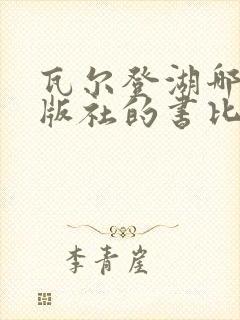 瓦尔登湖哪
版社的书比
李青崖